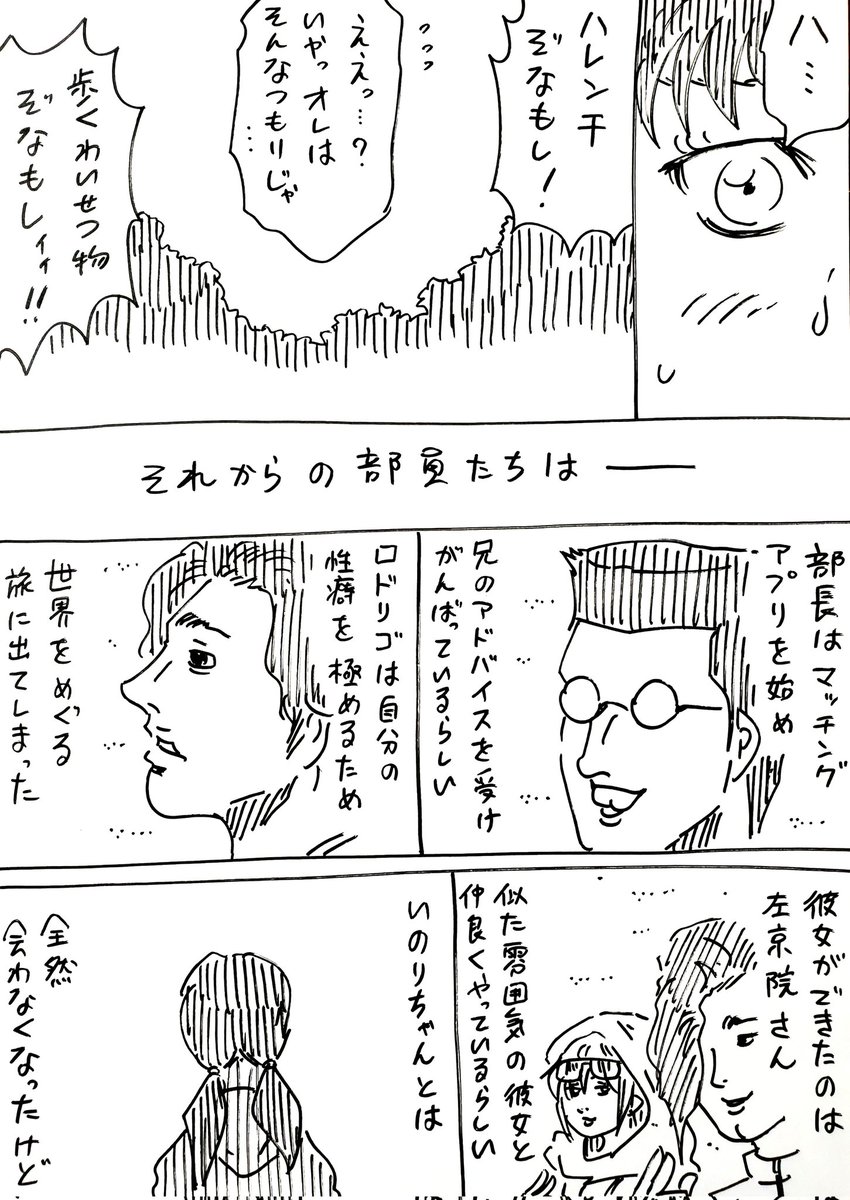 ハ…
ハレンチ
ぞなもし!
っっっ
ええっ…?
いやっオレは
そんなつもりじゃ
…
歩くわいせつ物
ぞなもしィィ!!
それからの部員たちは――
部長はマッチング
アプリを始め
兄のアドバイスを受け
がんばっているらしい
ロドリゴは自分の
性癖を極めるため
世界をめぐる
旅に出てしまった
彼女ができたのは
左京院さん
似た雰囲気の彼女と
仲良くやっているらしい
いのりちゃんとは
全然
会わなくなったけど